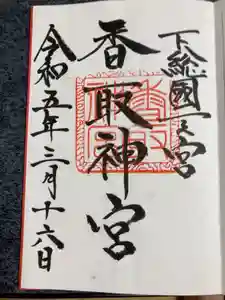 下総國一之宮
香取神宮
令和五年三月十六日